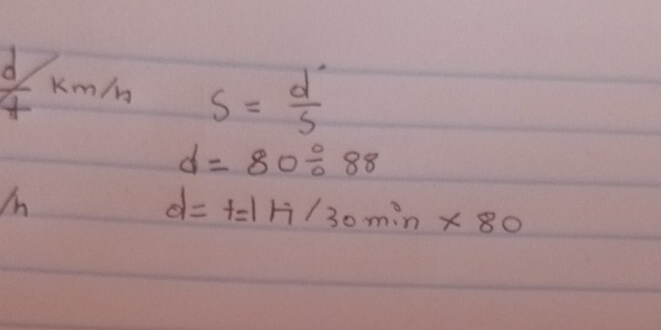 d/t km/h
S = d/s
d = 80 ÷ 88
/h d = t=1 H /30 min × 80